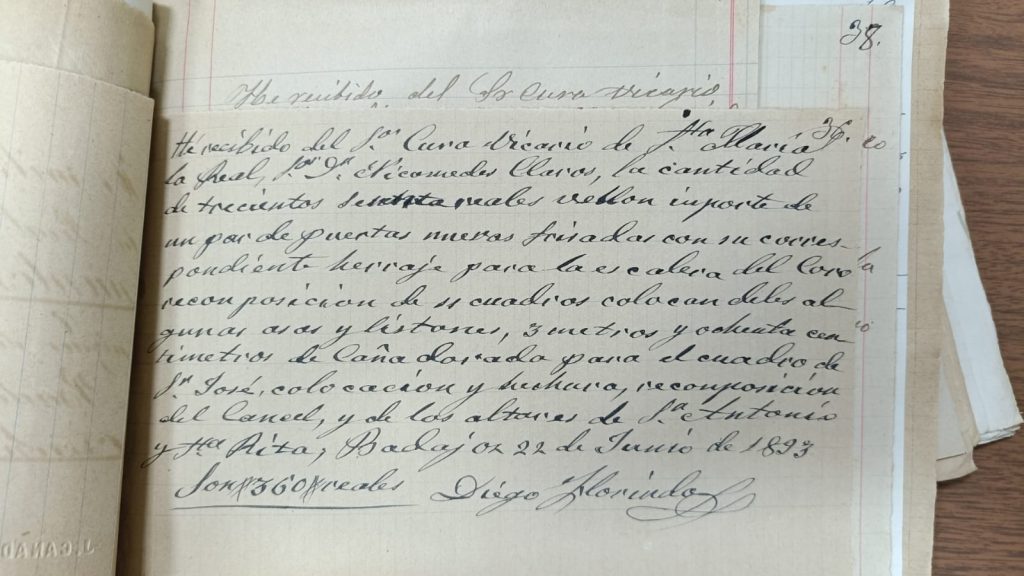 38.
He recibido del Sr Cura Vicario,
36.
He recibido del Sor Cura Vicario de Sta Maria
la Real, Sor Dn Nicomedes Claros, la cantidad
de trecientos sesenta reales vellon importe de
un par de puertas nuevas frisadas con su corres-
pondiente herraje para la escalera del Coro
reconposicion de 11 cuadros colocandoles al
gunas asas y listones, 3 metros y ochenta cen
timetros de Caña dorada para el cuadro de
Sn José, colocacion y hechura, reconposicion
del Cancel, y de los altares de Sn Antonio
y Sta Rita, Badajoz 22 de Junio de 1893
Son #360# reales Diego Florindo
J. CAÑAD